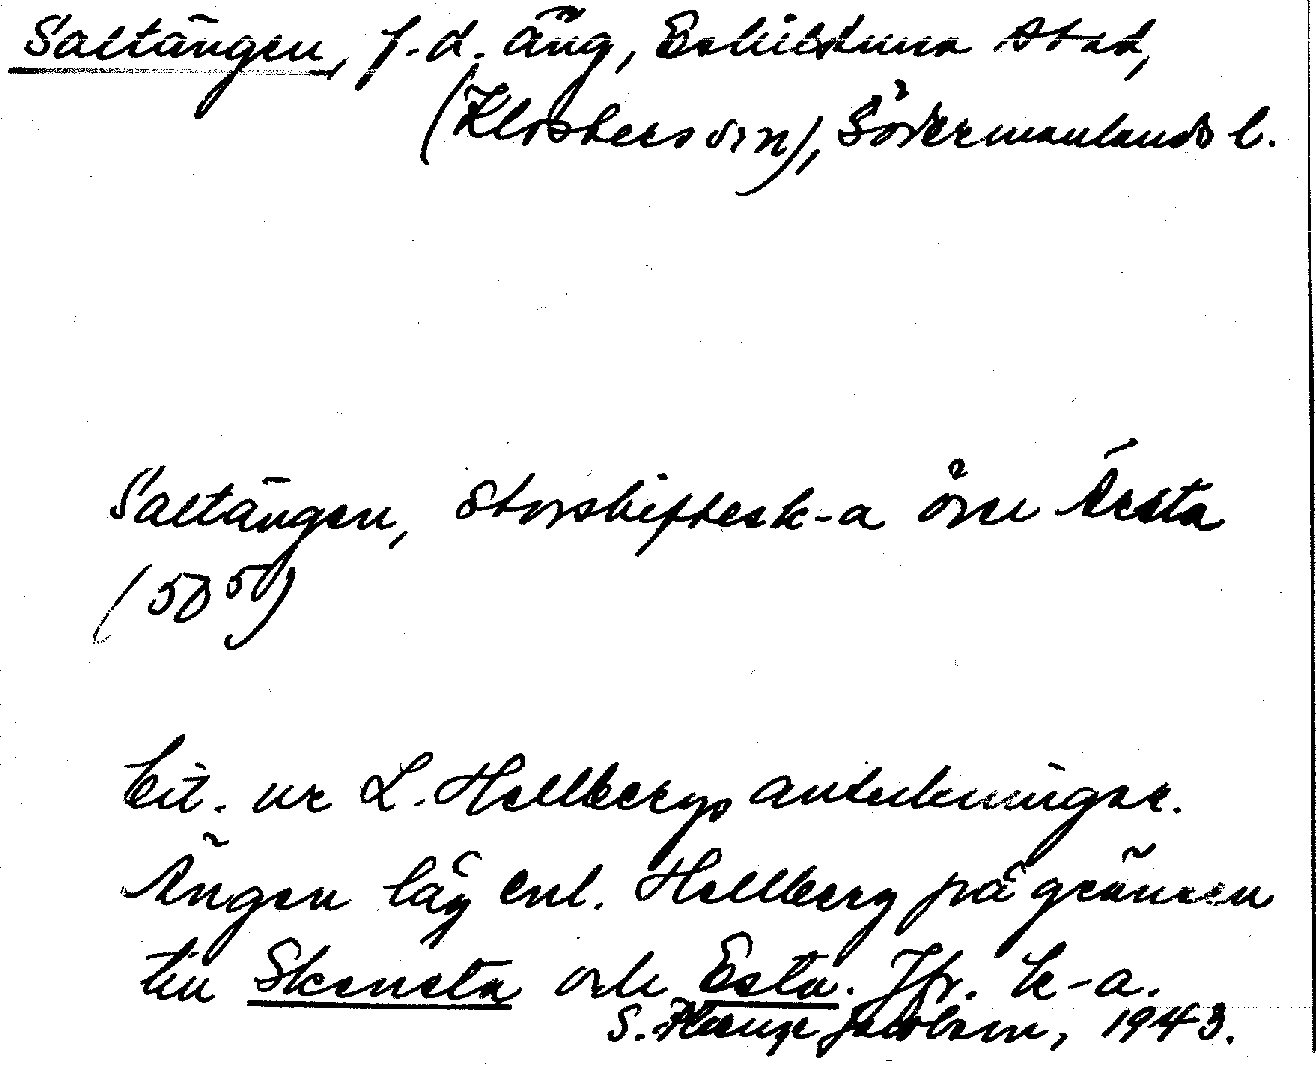 Saltängen, f.d. äng, Eskilstuna stad,
(Klosters srn), Södermanlands l.
Saltängen, Storskiftesk-a över Årsta
(50⁵⁰)
Cit. ur L. Hellbergs anteckningar.
Ängen låg enl. Hellberg på gränsen
till Skensta och Esta. Jfr. k-a.
S. Jacobson, 1943.